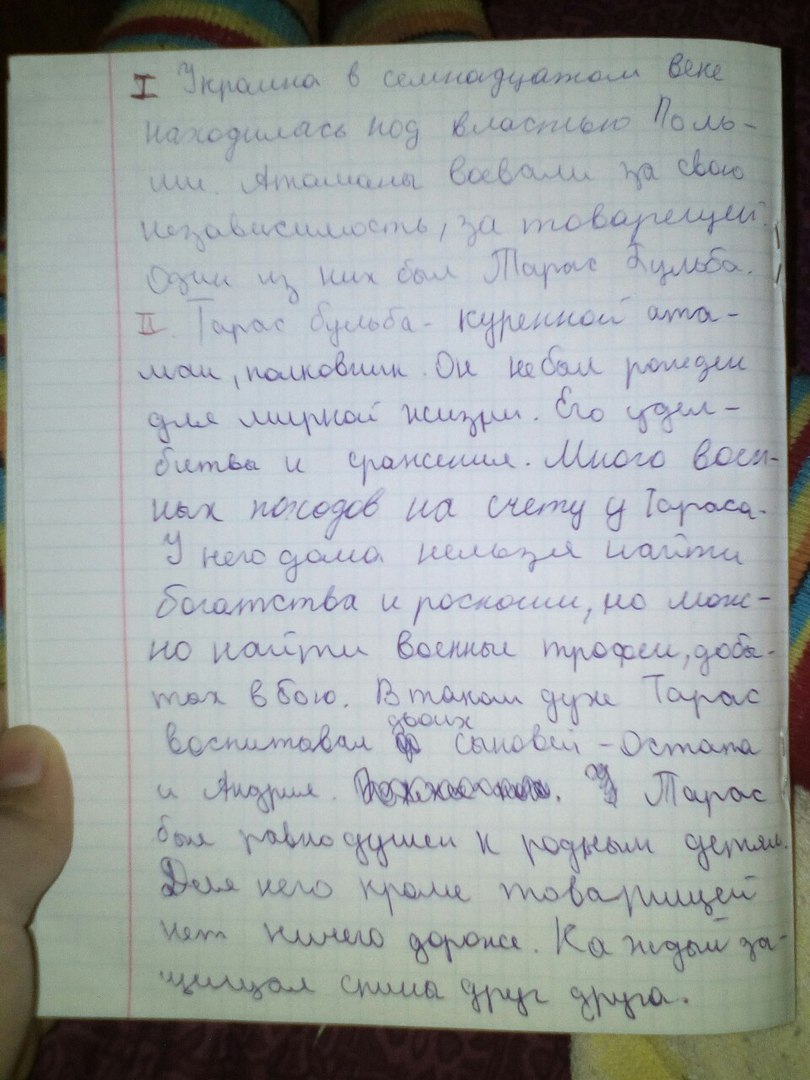 I Украина в семнадцатом веке
находилась под властью Поль-
ши. Атаманы воевали за свою
независимость, за товарещей.
Один из них был Тарас Бульба.
II. Тарас бульба - куренной ата-
ман, полковник. Он небыл рожден
для мирной жизни. Его удел -
битвы и сражения. Много воен-
ных походов на счету у Тараса.
У него дома нельзя найти
богатства и роскоши, но мож-
но найти военные трофеи, добы-
тых в бою. В таком духе Тарас
воспитовал двоих сыновей - Остапа
и Андрия. Тарас
был равнодушен к родным детям.
Для него кроме товарищей
нет ничего дороже. Каждый за-
щищал спина друг друга.